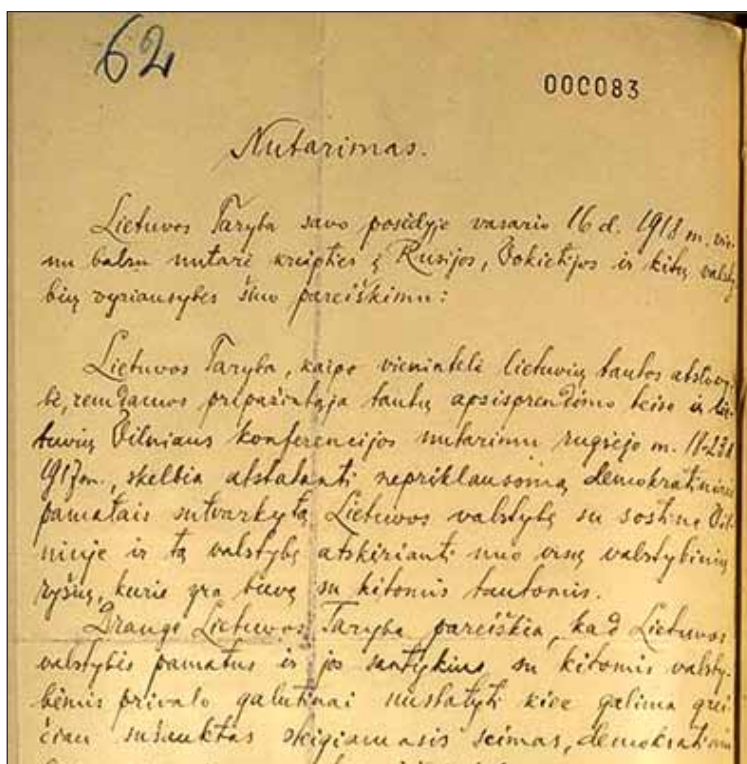 62
000083
Nutarimas.
Lietuvos Taryba savo posėdyje vasario 16 d. 1918 m. vie-
nu balsu nutarė kreipties į Rusijos, Vokietijos ir kitų valsty
bių vyriausybes šiuo pareiškimu:
Lietuvos Taryba, kaipo vienintelė lietuvių tautos atstovy-
bė, remdamos pripažintąja tautų apsisprendimo teise ir lie-
tuvių Vilniaus konferencijos nutarimu rugsėjo m. 18-23 d
1917 m., skelbia atstatanti nepriklausomą, demokratiniais
pamatais sutvarkytą Lietuvos valstybę su sostine Vil-
niuje ir tą valstybę atskirianti nuo visų valstybinių
ryšių, kurie yra buvę su kitomis tautomis.
Drauge Lietuvos Taryba pareiškia, kad Lietuvos
valstybės pamatus ir jos santykius su kitomis valsty-
bėmis privalo galutinai nustatyti kiek galima grei-
čiau sušauktas steigiamasis seimas, demokratiniu